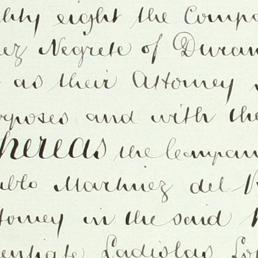 hty eight the Compa
ez Negrete of Duran
as their Attorney
rposes and with the
hereas the Compan
ablo Martinez del R
ttorney in the said
entiate Ladislas Lo